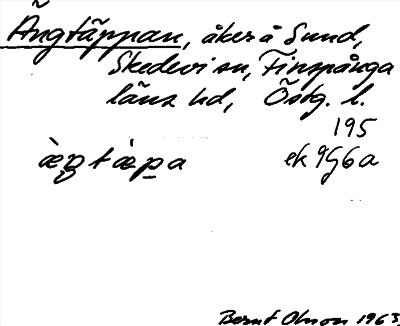 Ängtäppan, åker å Sund,
Skedevi sn, Finspånga
läns hd, Östg. l.
195
æ̀ŋtæ̀pa ek 9G6a
Bernt Olsson 1963